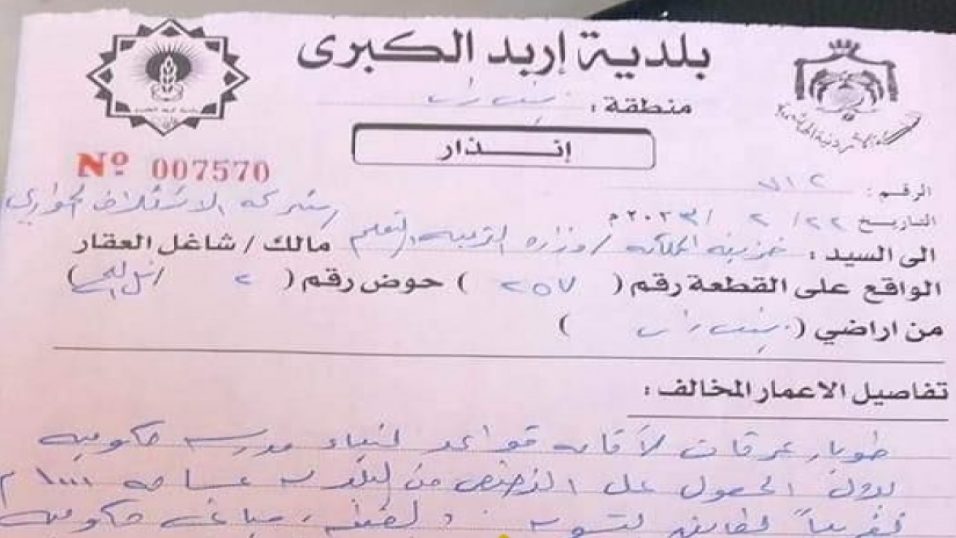 بلدية إربد الكبرى
منطقة :
إنــذار
Nº 007570
الرقم : ٧١٢
التاريخ ٢٢ / ٢ / ٢٠٢٣ م
شركة الائتلاف الحواري
الى السيد : خزينة المملكة / وزارة التربية والتعليم مالك / شاغل العقار
الواقع على القطعة رقم ( ٢٥٧ ) حوض رقم ( ٢ / )
من اراضي ( )
تفاصيل الاعمار المخالف :
طوبار لاقامة قواعد لبناء مدرسة حكومية
بدون الحصول على الترخيص من البلدية مساحة ١٠٠٠ م
تقريباً حكومية